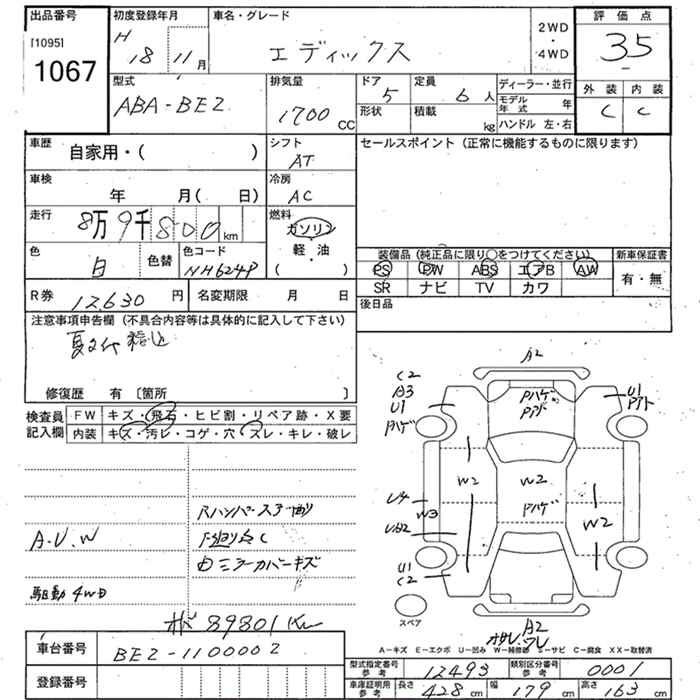 出品番号 初度登録年月 車名・グレード 2WD・4WD 評価点
[1095] H 18 11月 エディックス 35
1067 外装 内装
型式 排気量 ドア 定員 ディーラー・並行 C C
ABA-BE2 1700CC 5 6人 モデル年式 年
形状 積載 kg ハンドル 左・右
車歴 シフト セールスポイント (正常に機能するものに限ります)
自家用・( ) AT
車検 冷房
年 月( 日) AC
走行 8万9千800km 燃料
ガソリン
軽・油
( )
色 白 色替 色コード 装備品 (純正品に限り○をつけてください) 新車保証書
NH624P PS PW ABS エアB AW 有・無
SR ナビ TV カワ
R券 12,630円 名変期限 月 日 後日品
注意事項申告欄 (不具合内容等は具体的に記入して下さい)
夏タイヤ積込
修復歴 有 〔箇所 〕
検査員記入欄 FW キズ・飛石・ヒビ割・リペア跡・X要
内装 キズ・汚レ・コゲ・穴・スレ・キレ・破レ
A.U.W
駆動4WD
下廻り C
ミラーカバーキズ
89801Km
A2
C2
A3
U1
Pハゲ
Pハゲ
U1
W2 W2
Pハゲ
U4
W3 W2
U1
C2
スペア
A2
A-キズ E-エクボ U-凹み W-補修跡 S-サビ C-腐食 XX-取替済
車台番号 BE2-1100002
登録番号
型式指定番号 参考 12493 類別区分番号 参考 0001
車庫証明用 参考 長さ 428cm 幅 179cm 高さ 163cm